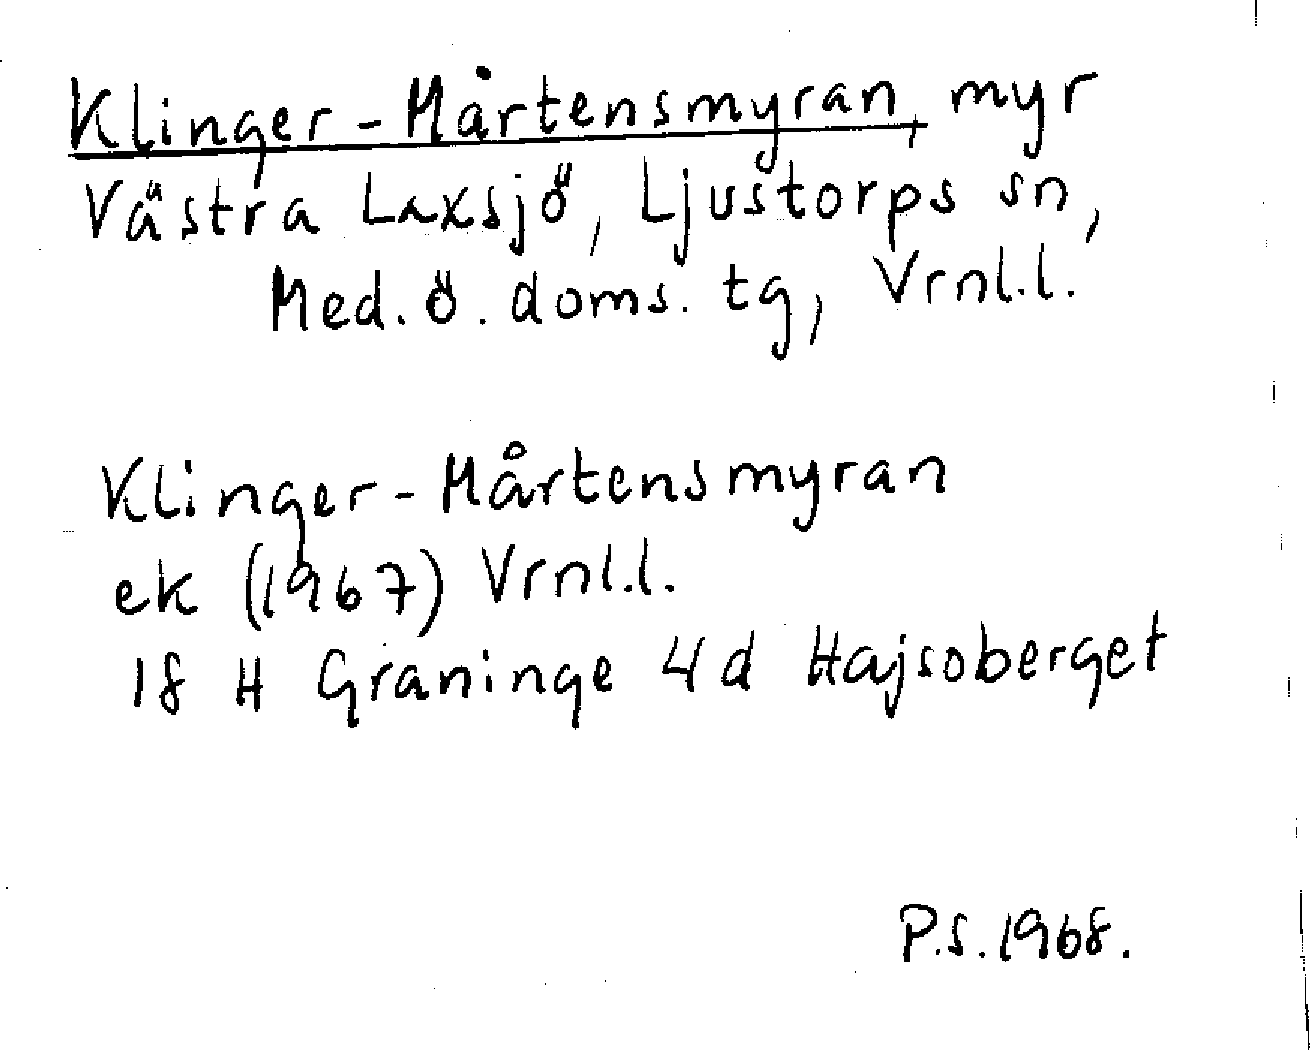 Klinger-Mårtensmyran, myr
Västra Laxsjö, Ljustorps sn,
Med. ö. doms. tg, Vrnl.l.
Klinger-Mårtensmyran
ek (1967) Vrnl.l.
18 H Graninge 4d Hajsoberget
P.S. 1968.